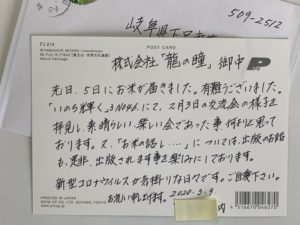 509-2512
岐阜県下呂市
FJ 214
POST CARD
株式会社「龍の瞳」御中
先日、5日にお米が届きました。有難うございました。
「いのち輝く」3 NO86. にて、2月3日の交流会の様子を
拝見し、素晴らしい、楽しい会であった事、何よりと思って
おります。又、「お米の話し・・・・」については、出版のお話
も、是非、出版されます事を楽しみにしております。
新型コロナウイルスが気掛りな日々です。ご自愛下さい。
お洗い
2020. 3. 9
PRINTED IN JAPAN
4 516670 046270